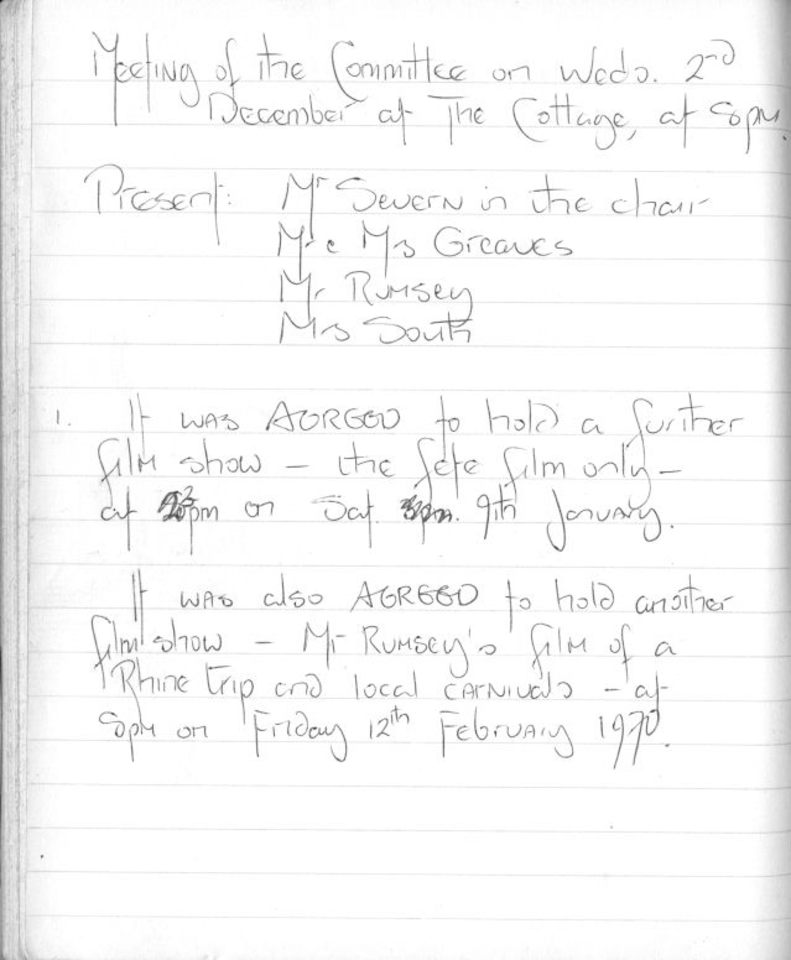 Meeting of the Committee on Weds. 2nd
December at The Cottage, at 8pm.
Present: Mr Severn in the chair
Mr & Mrs Greaves
Mr Rumsey
Mrs South
1. It was AGREED to hold a further
film show – the fete film only –
at pm on Sat. 9th January.
It was also AGREED to hold another
film show – Mr Rumsey's film of a
Rhine trip and local carnivals – at
8pm on Friday 12th February 1970.